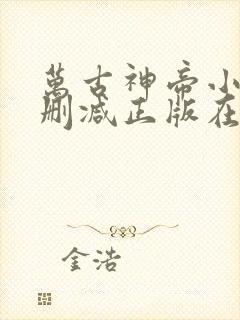 萬古神帝小
删减正版在
金浩